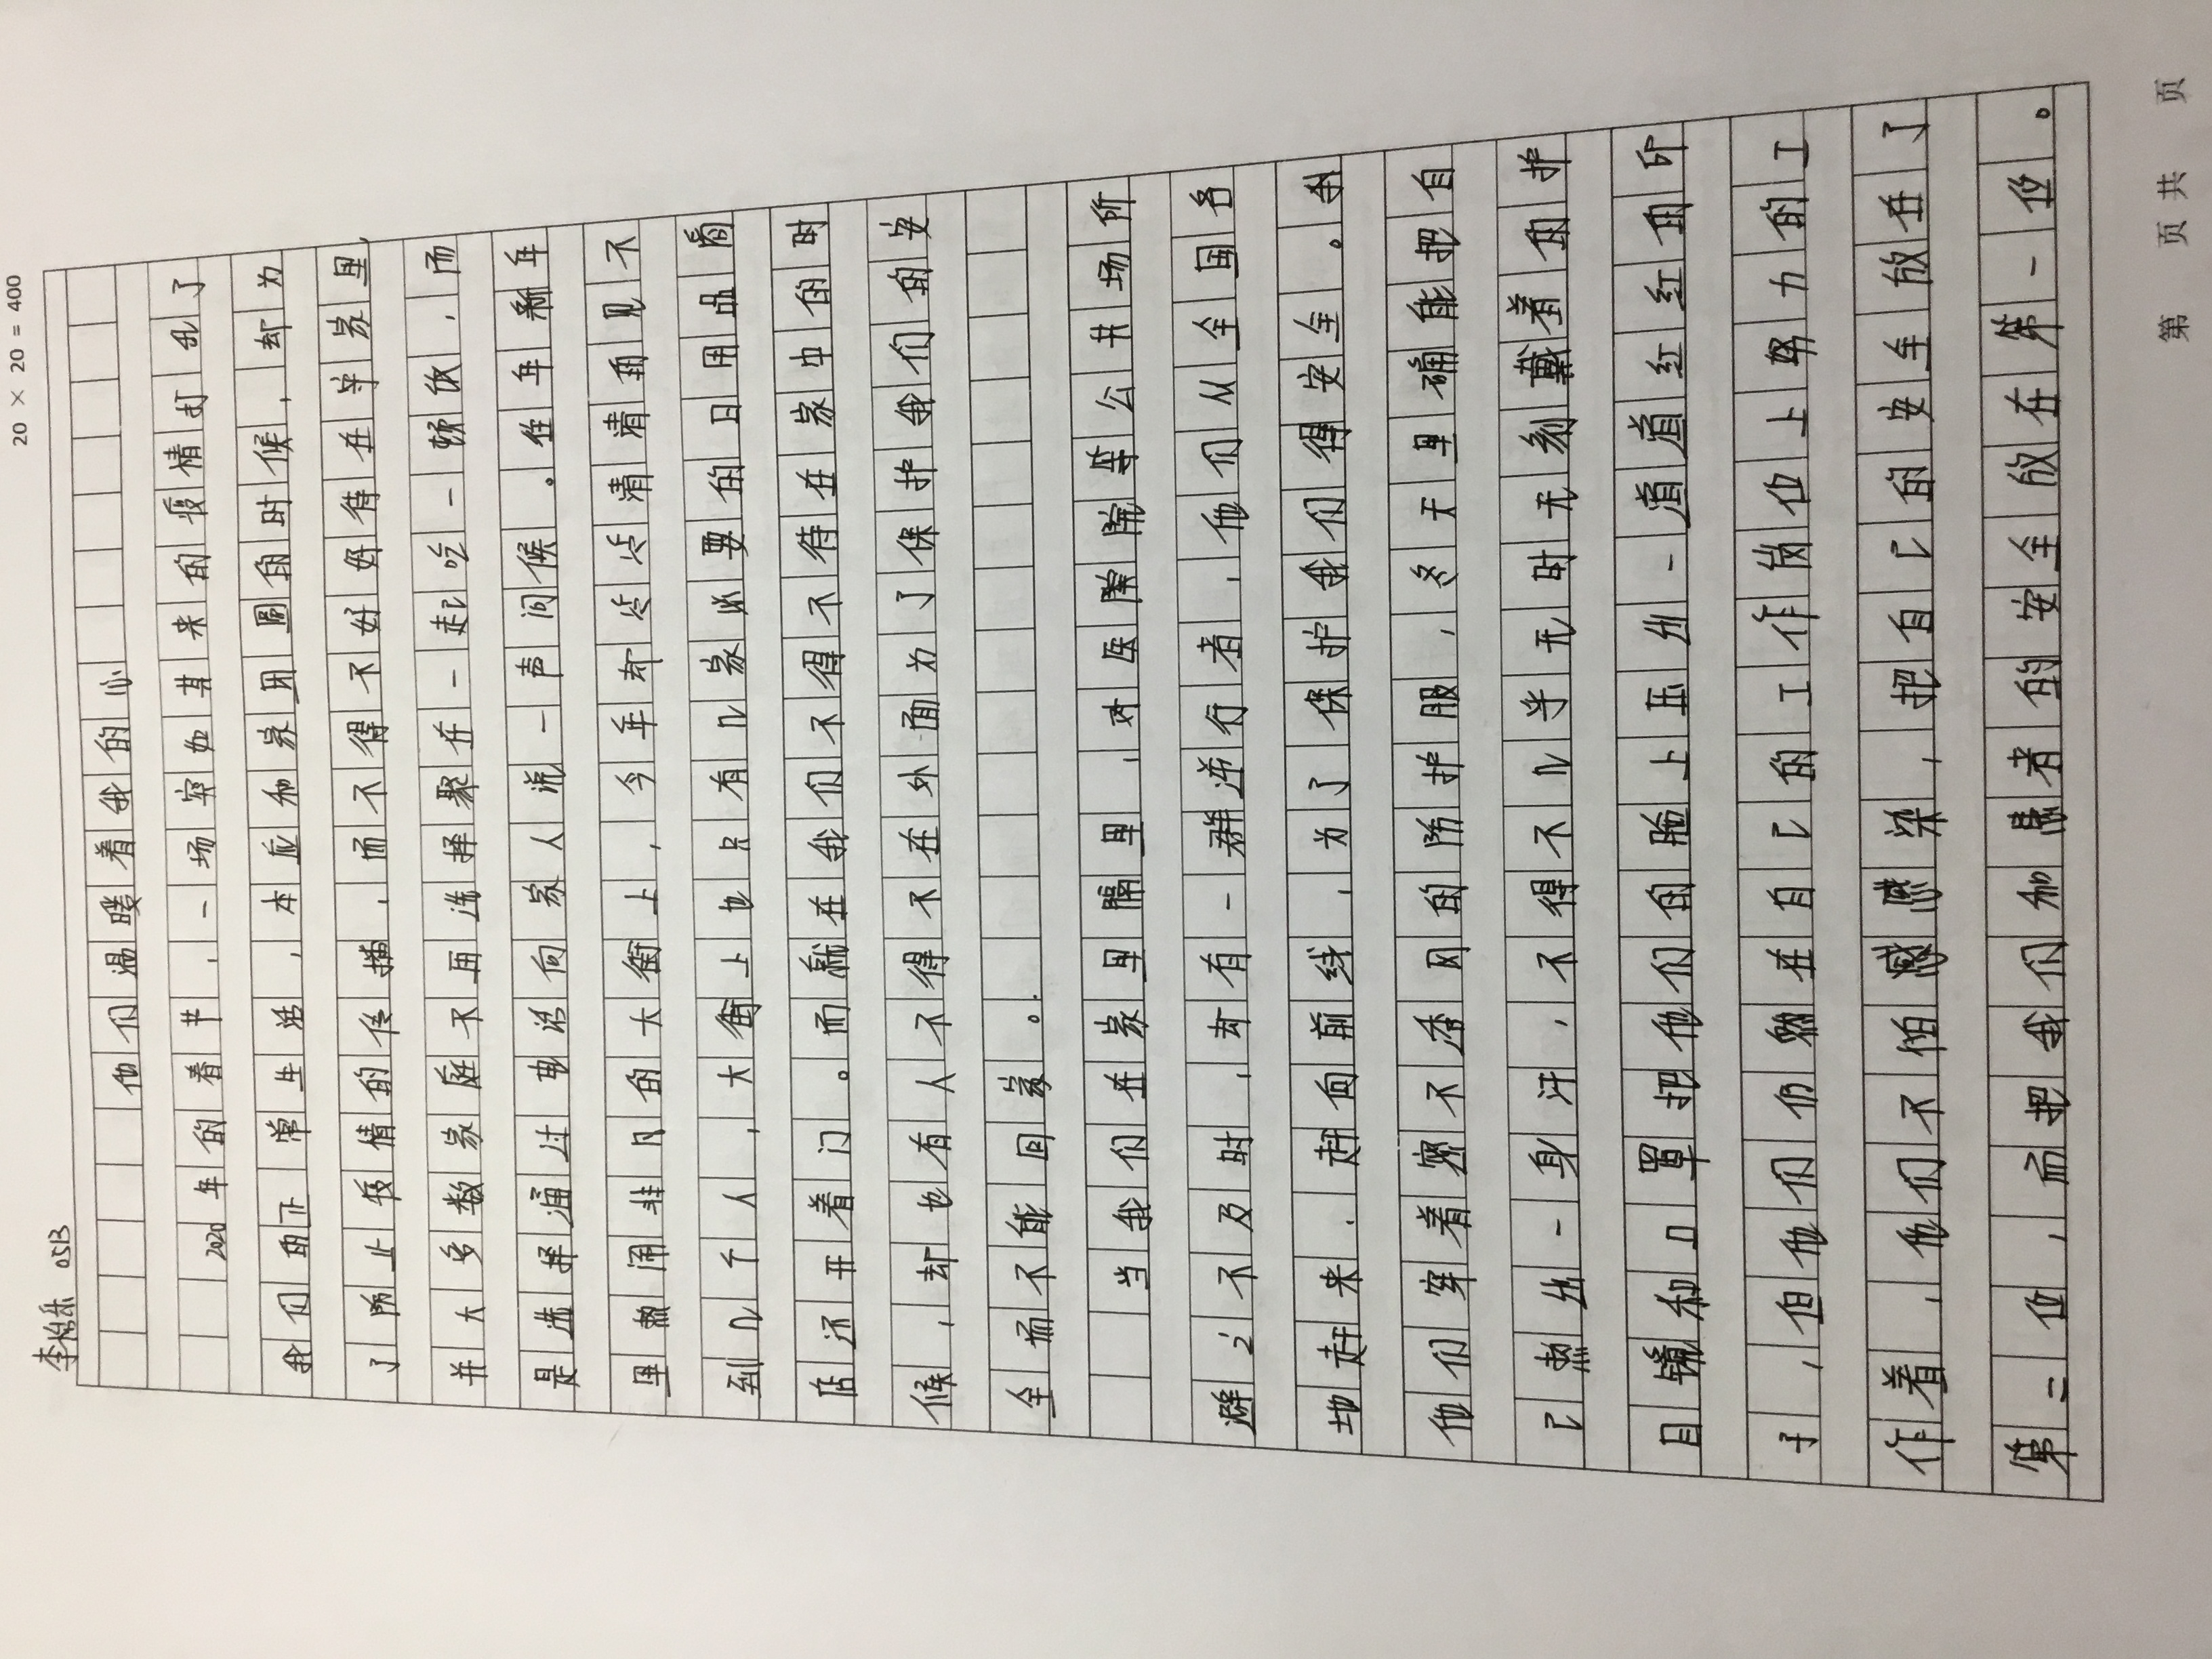 20 × 20 = 400
李怡乐 0513
他们温暖着我的心
2020年的春节，一场突如其来的疫情打乱了
我们的正常生活，本应和家团圆的时候，却为
了防止疫情的传播，而不得不好好待在家里
并大多数家庭不再选择聚在一起吃一顿饭，而
是选择通过电话向家人说一声问候。往年新年
里热闹非凡的大街上，今年却冷冷清清到见不
到几个人，大街上也只有几家必要的日用品商
店还开着门。而就在我们不得不待在家中的时
候，却也有人不得不在外面为了保护我们的安
全而不能回家。
当我们在家里隔里，对医院等公共场所
避之不及时，却有一群逆行者，他们从全国各
地赶来，赶向前线，为了保护我们得安全。
他们穿着密不透风的防护服，冬天里确能把自
己热出一身汗，不得不几乎无时无刻戴着的护
目镜和口罩把他们的脸上压出一道道红红的印
子，但他们仍然在自己的工作岗位上努力的工
作着，他们不怕感染，把自己的安全放在了
第二位，而把我们和患者的安全放在第一位。
第 页 共 页